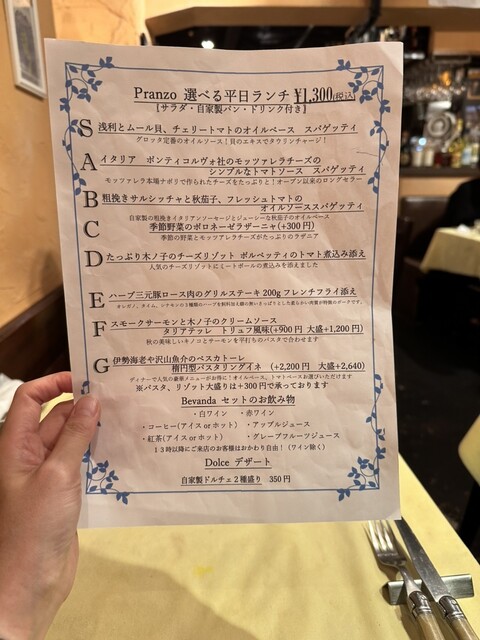 Pranzo 選べる平日ランチ ¥1,300(税込)
【サラダ・自家製パン・ドリンク付き】
S 浅利とムール貝、チェリートマトのオイルベース スパゲッティ
グロック定番のオイルソース！貝のエキスでタウリンチャージ！
A イタリア ポンティコルヴォ社のモッツァレラチーズの
シンプルなトマトソース スパゲッティ
モッツァレラ本場ナポリで作られたチーズをたっぷりと！オープン以来のロングセラー
B 粗挽きサルシッチャと秋茄子、フレッシュトマトの
オイルソーススパゲッティ
自家製の粗挽きイタリアンソーセージとジューシーな秋茄子のオイルベース
C 季節野菜のボロネーゼラザーニャ(+300円)
季節の野菜とモッツァレラチーズがたっぷりのラザニア
D たっぷり木ノ子のチーズリゾット ポルペッティのトマト煮込み添え
人気のチーズリゾットにミートボールの煮込みを添えました
E ハーブ三元豚ロース肉のグリルステーキ200gフレンチフライ添え
オレガノ、タイム、シナモンの3種類のハーブを飼料
F スモークサーモンと木ノ子のクリームソース
タリアテッレ トリュフ風味(+900円 大盛+1,200円)
秋の美味しいキノコとサーモンを平打ちのパスタで合わせます
G 伊勢海老や沢山魚介のペスカトーレ
楕円型パスタリングイネ (+2,200円 大盛+2,640)
ディナーで人気の豪華メニューがお得に！オイルベース、トマトベースお選びいただけます
※パスタ、リゾット大盛りは+300円で承っております
Bevanda セットのお飲み物
・白ワイン ・赤ワイン
・コーヒー(アイス or ホット) ・アップルジュース
・紅茶(アイス or ホット) ・グレープフルーツジュース
13時以降にご来店のお客様はおかわり自由！(ワイン除く)
Dolce デザート
自家製ドルチェ2種盛り 350円